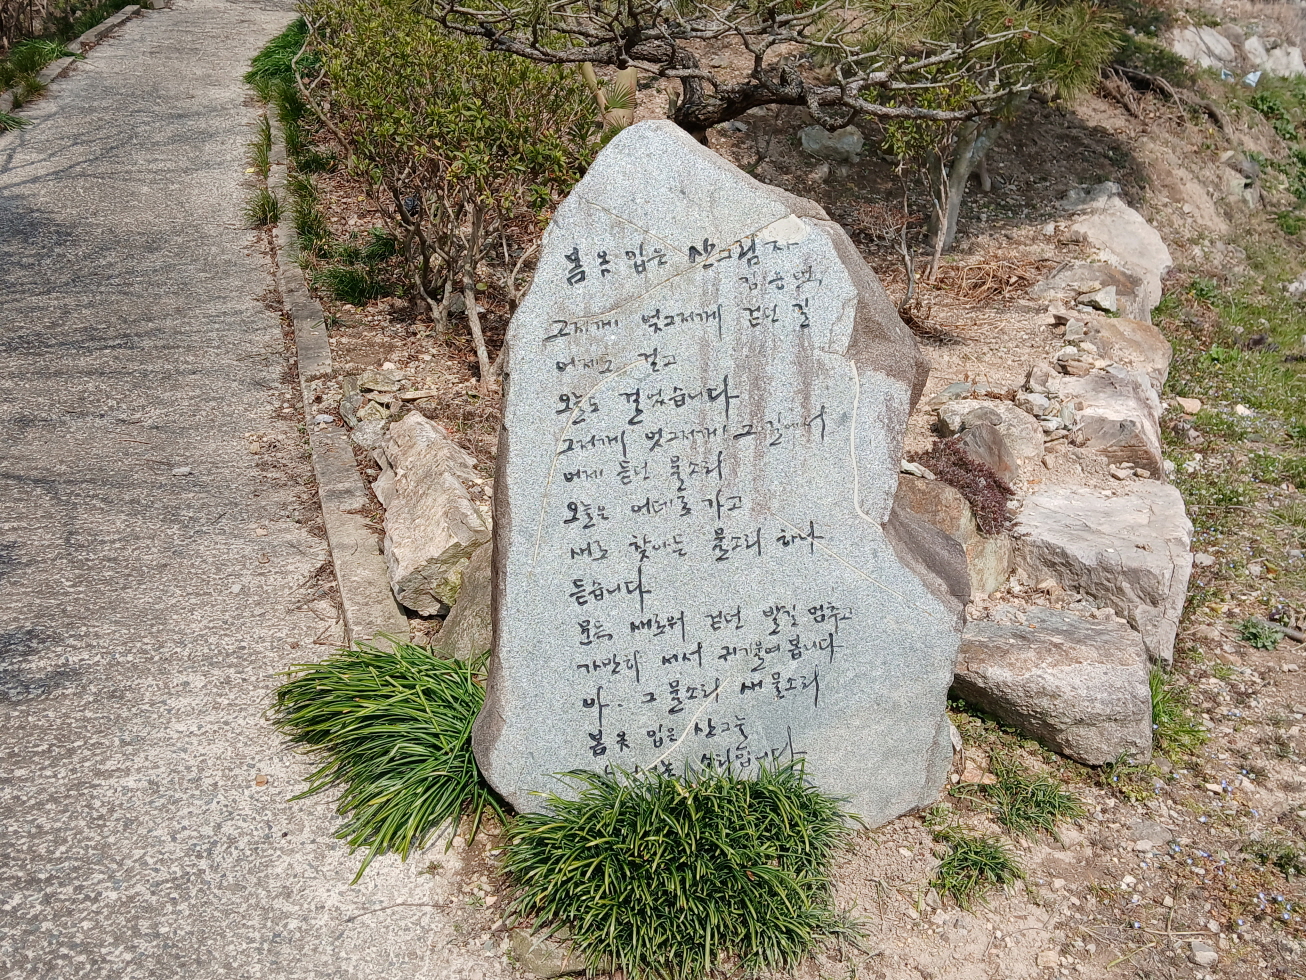 봄 옷 입은 산그림자
김용택
그저께 엊그저께 걷던 길
어제도 걸고
오늘도 걸었습니다
그저께 엊그저께 그 길에서
어제 듣던 물소리
오늘은 어데로 가고
새로 찾아든 물소리 하나
듣습니다
문득 새로워 걷던 발길 멈추고
가만히 서서 귀기울여 봅니다
아. 그 물소리 새 물소리
봄 옷 입은 산그늘
소리입니다